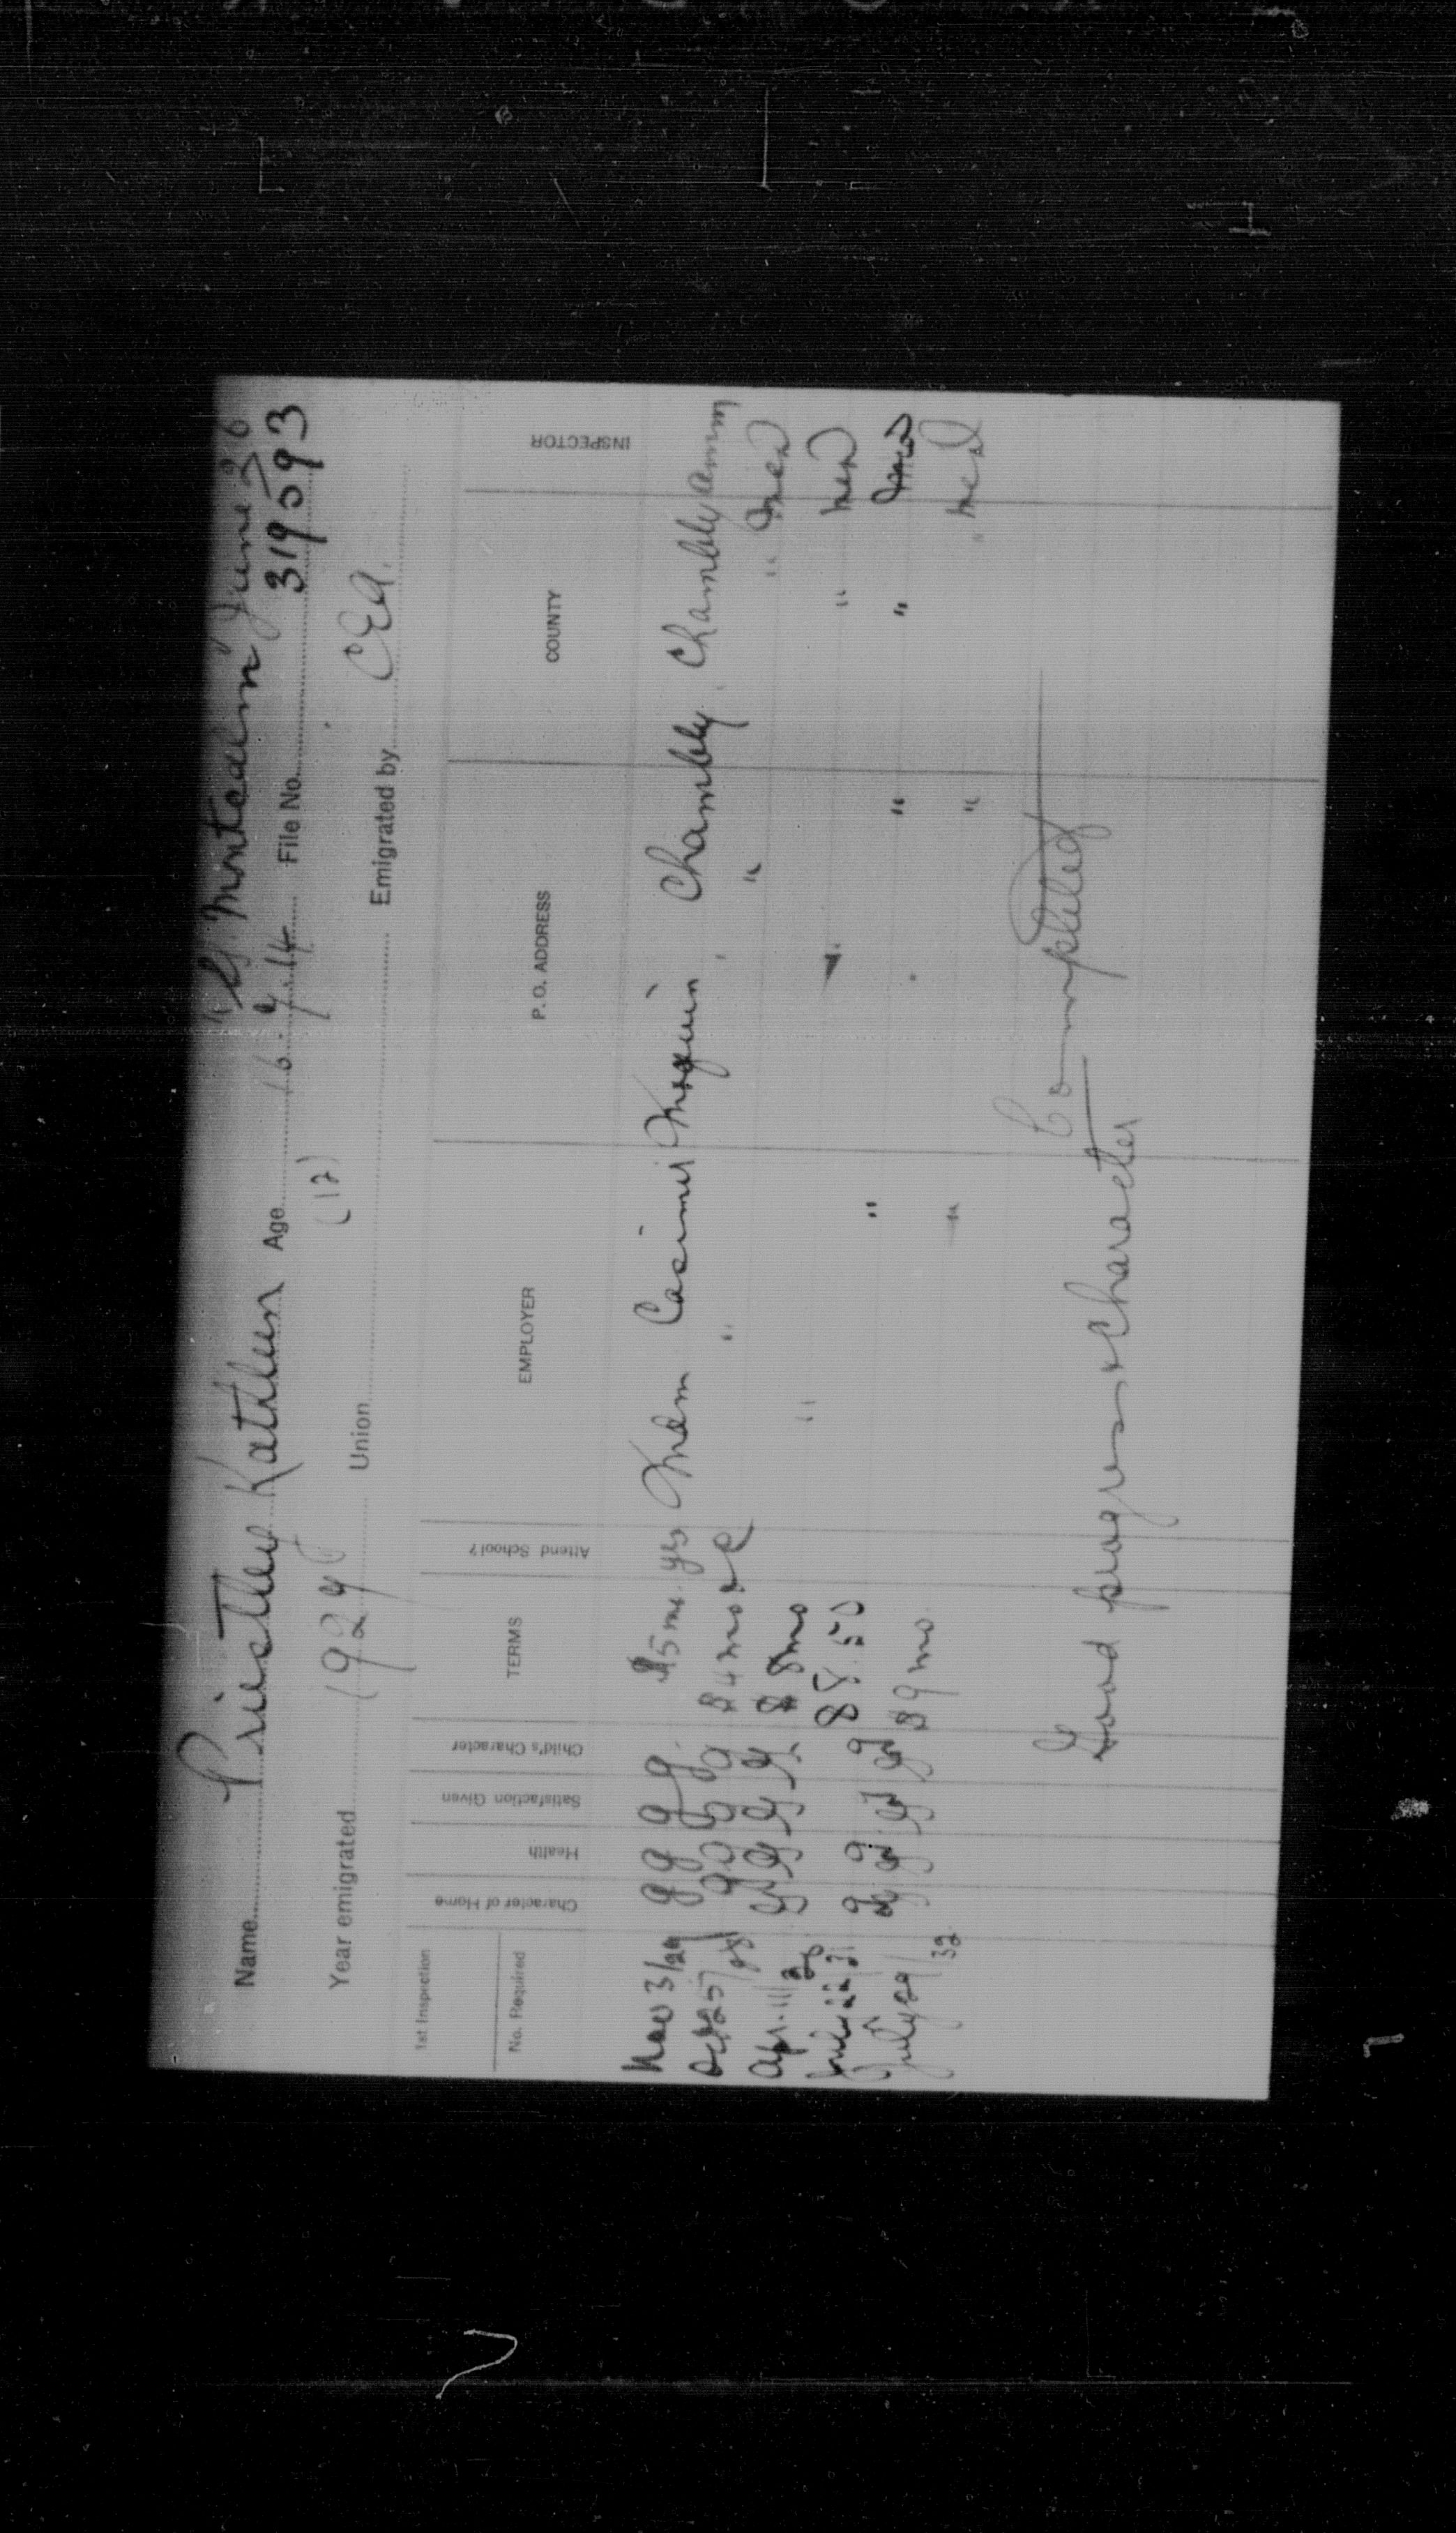 "St. Montcalm June 26
Name Priestley Kathleen Age 16.9.14 File No. 319593
(12)
Year emigrated 1926 Union Emigrated by CEA.
1st Inspection
No. Required
Character of Home Health Satisfaction Given Child's Character TERMS Attend School? EMPLOYER P. O. ADDRESS COUNTY INSPECTOR
Nov 3/ g g g g. $5 mo yes Mdm Casimir Chambly. Chambly amm
Oct 25/28 g g g g $4 mo & C " " "
Apr. 11/ g g g g $8 mo " "
22/31 g g $8.50 " " "
July 29/32 g g g g $9 mo. " " "
Completed
Good progress & Character